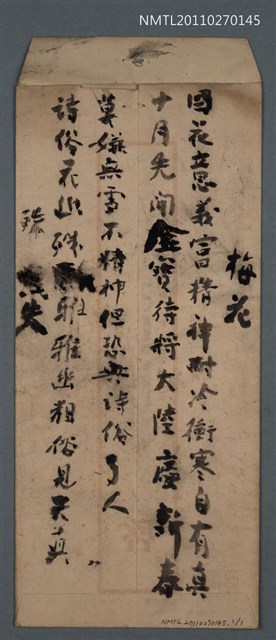 NMTL20110270145
梅花
國花意義富精神耐冷衝寒自有真
十月先開金寶待將大陸慶新春
莫嫌無雪不精神但恐無詩俗了人
詩俗花幽殊雅雅幽粗俗見天真
NMTL20110270145. 1/1